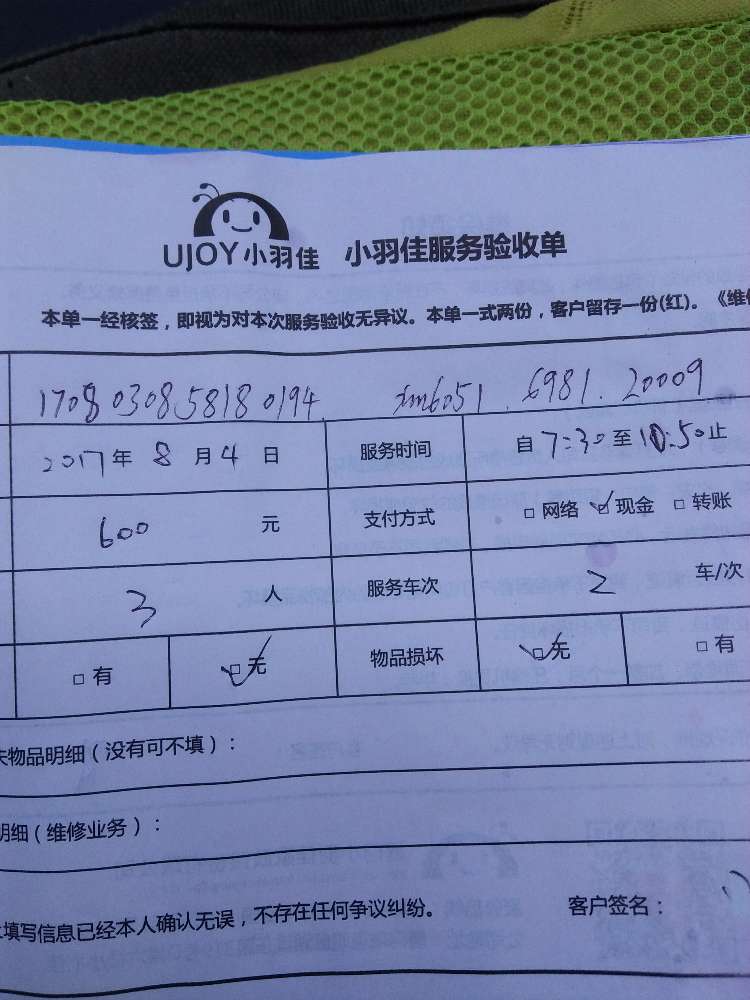 UJOY小羽佳 小羽佳服务验收单
本单一经核签，即视为对本次服务验收无异议。本单一式两份，客户留存一份(红)。《维修
1708030858180194 xm6051.6981.20009
2017年8月4日 服务时间 自7:30至10:50止
600元 支付方式 □网络 ☑现金 □转账
3人 服务车次 2车/次
□有 ☑无 物品损坏 ☑无 □有
物品明细（没有可不填）：
明细（维修业务）：
填写信息已经本人确认无误，不存在任何争议纠纷。 客户签名：